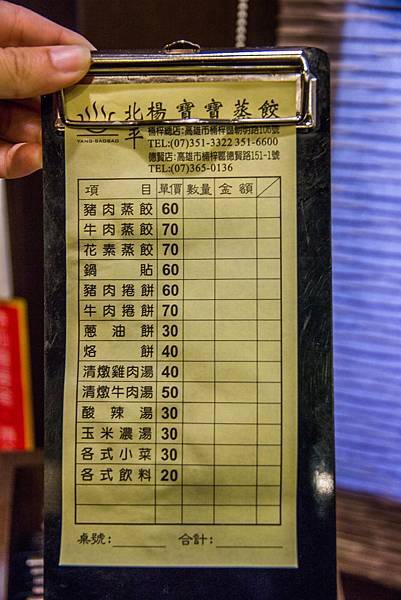 北平
楊寶寶蒸餃
YANG-BAOBAO
楠梓總店:高雄市楠梓區朝明路106號
TEL:(07)351-3322 351-6600
德賢店:高雄市楠梓區德賢路151-1號
TEL:(07)365-0136
項目 單價 數量 金額
豬肉蒸餃 60
牛肉蒸餃 70
花素蒸餃 70
鍋貼 60
豬肉捲餅 60
牛肉捲餅 70
蔥油餅 30
烙餅 40
清燉雞肉湯 40
清燉牛肉湯 50
酸辣湯 30
玉米濃湯 30
各式小菜 30
各式飲料 20
桌號:______ 合計:______